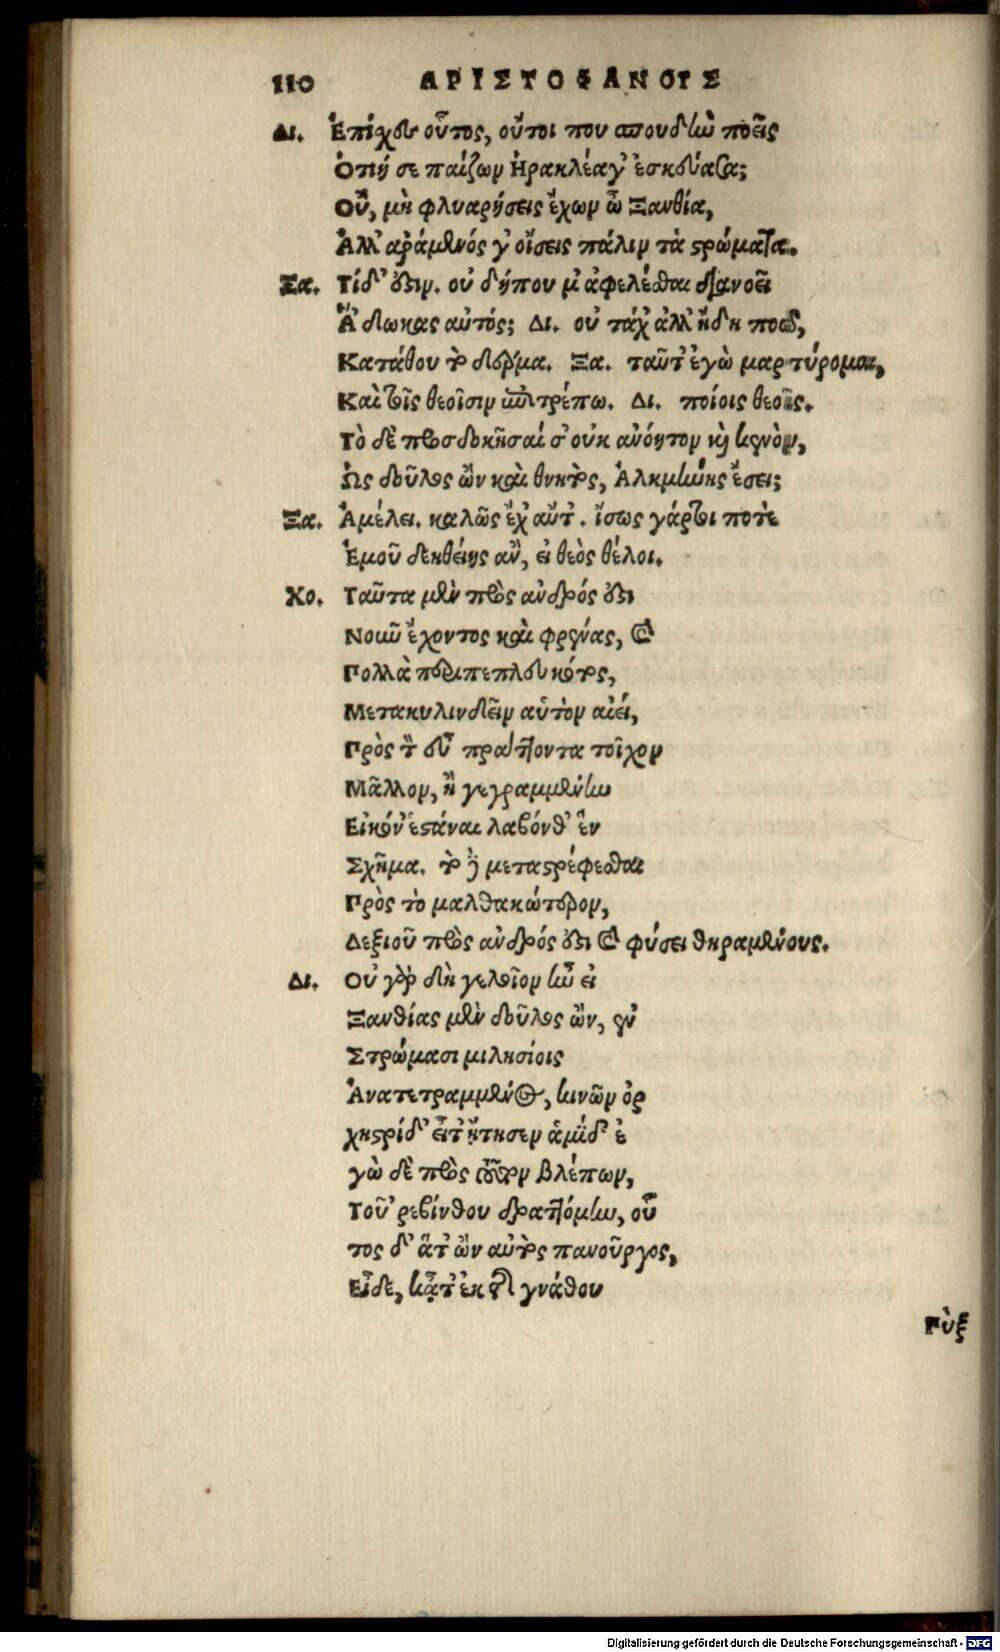 110 ΑΡΙΣΤΟΦΑΝΟΥΣ
Δι. Ἐπίχες οὗτος, οὔτοι που σπουδὴν ποεῖς
Ὁτιή σε παίζων Ἡρακλέα γ' ἐσκεύασα;
Οὐ, μὴ φλυαρήσεις ἔχων ὦ Ξανθία,
Ἀλλ' ἀράμενός γ' οἴσεις πάλιν τὰ στρώματα.
Ξα. Τί δ' ἔστιν. οὐ δήπου μ' ἀφελέσθαι διανοεῖ
Ἃ δίωκας αὐτός; Δι. οὐ τάχ' ἀλλ' ἤδη ποῶ,
Κατάθου τὸ δέρμα. Ξα. ταῦτ' ἐγὼ μαρτύρομαι,
Καὶ τοῖς θεοῖσιν ἐπιτρέπω. Δι. ποίοις θεοῖς.
Τὸ δὲ προσδοκῆσαί σ' οὐκ ἀνόητον καὶ κενὸν,
Ὡς δοῦλος ὢν καὶ θνητὸς, Ἀλκμήνης ἔσει;
Ξα. Ἀμέλει. καλῶς ἔχ' αὔτ'. ἴσως γάρ τοι ποτὲ
Ἐμοῦ δεηθείης ἂν, εἰ θεὸς θέλοι.
Χο. Ταῦτα μὲν πρὸς ἀνδρός ἐστι
Νοῦν ἔχοντος καὶ φρένας, καὶ
Πολλὰ περιπεπλευκότος,
Μετακυλινδεῖν αὑτὸν αἰεί,
Πρὸς τὸν εὖ πράττοντα τοῖχον
Μᾶλλον, ἢ γεγραμμένην
Εἰκόν' ἑστάναι λαβόνθ' ἓν
Σχῆμα. τὸ δὲ μεταστρέφεσθαι
Πρὸς τὸ μαλθακώτερον,
Δεξιοῦ πρὸς ἀνδρός ἐστι καὶ φύσει θηραμένους.
Δι. Οὐ γὰρ δὴ γελοῖον ἦν εἰ
Ξανθίας μὲν δοῦλος ὢν, ἐν
Στρώμασι μιλησίοις
Ἀνατετραμμένος, κινῶν ὀρ
χηστρίδ' εἶτ' ᾔτησεν ἁμίδ' ἐ
γὼ δὲ πρὸς τοῦτον βλέπων,
Τοῦ 'ρεβίνθου δραττόμην, οὗ
τος δ' ἅτ' ὢν αὐτὸς πανοῦργος,
Εἶδε, κᾆτ' ἐκ τῆς γνάθου
Πὺξ
Digitalisierung gefördert durch die Deutsche Forschungsgemeinschaft - DFG